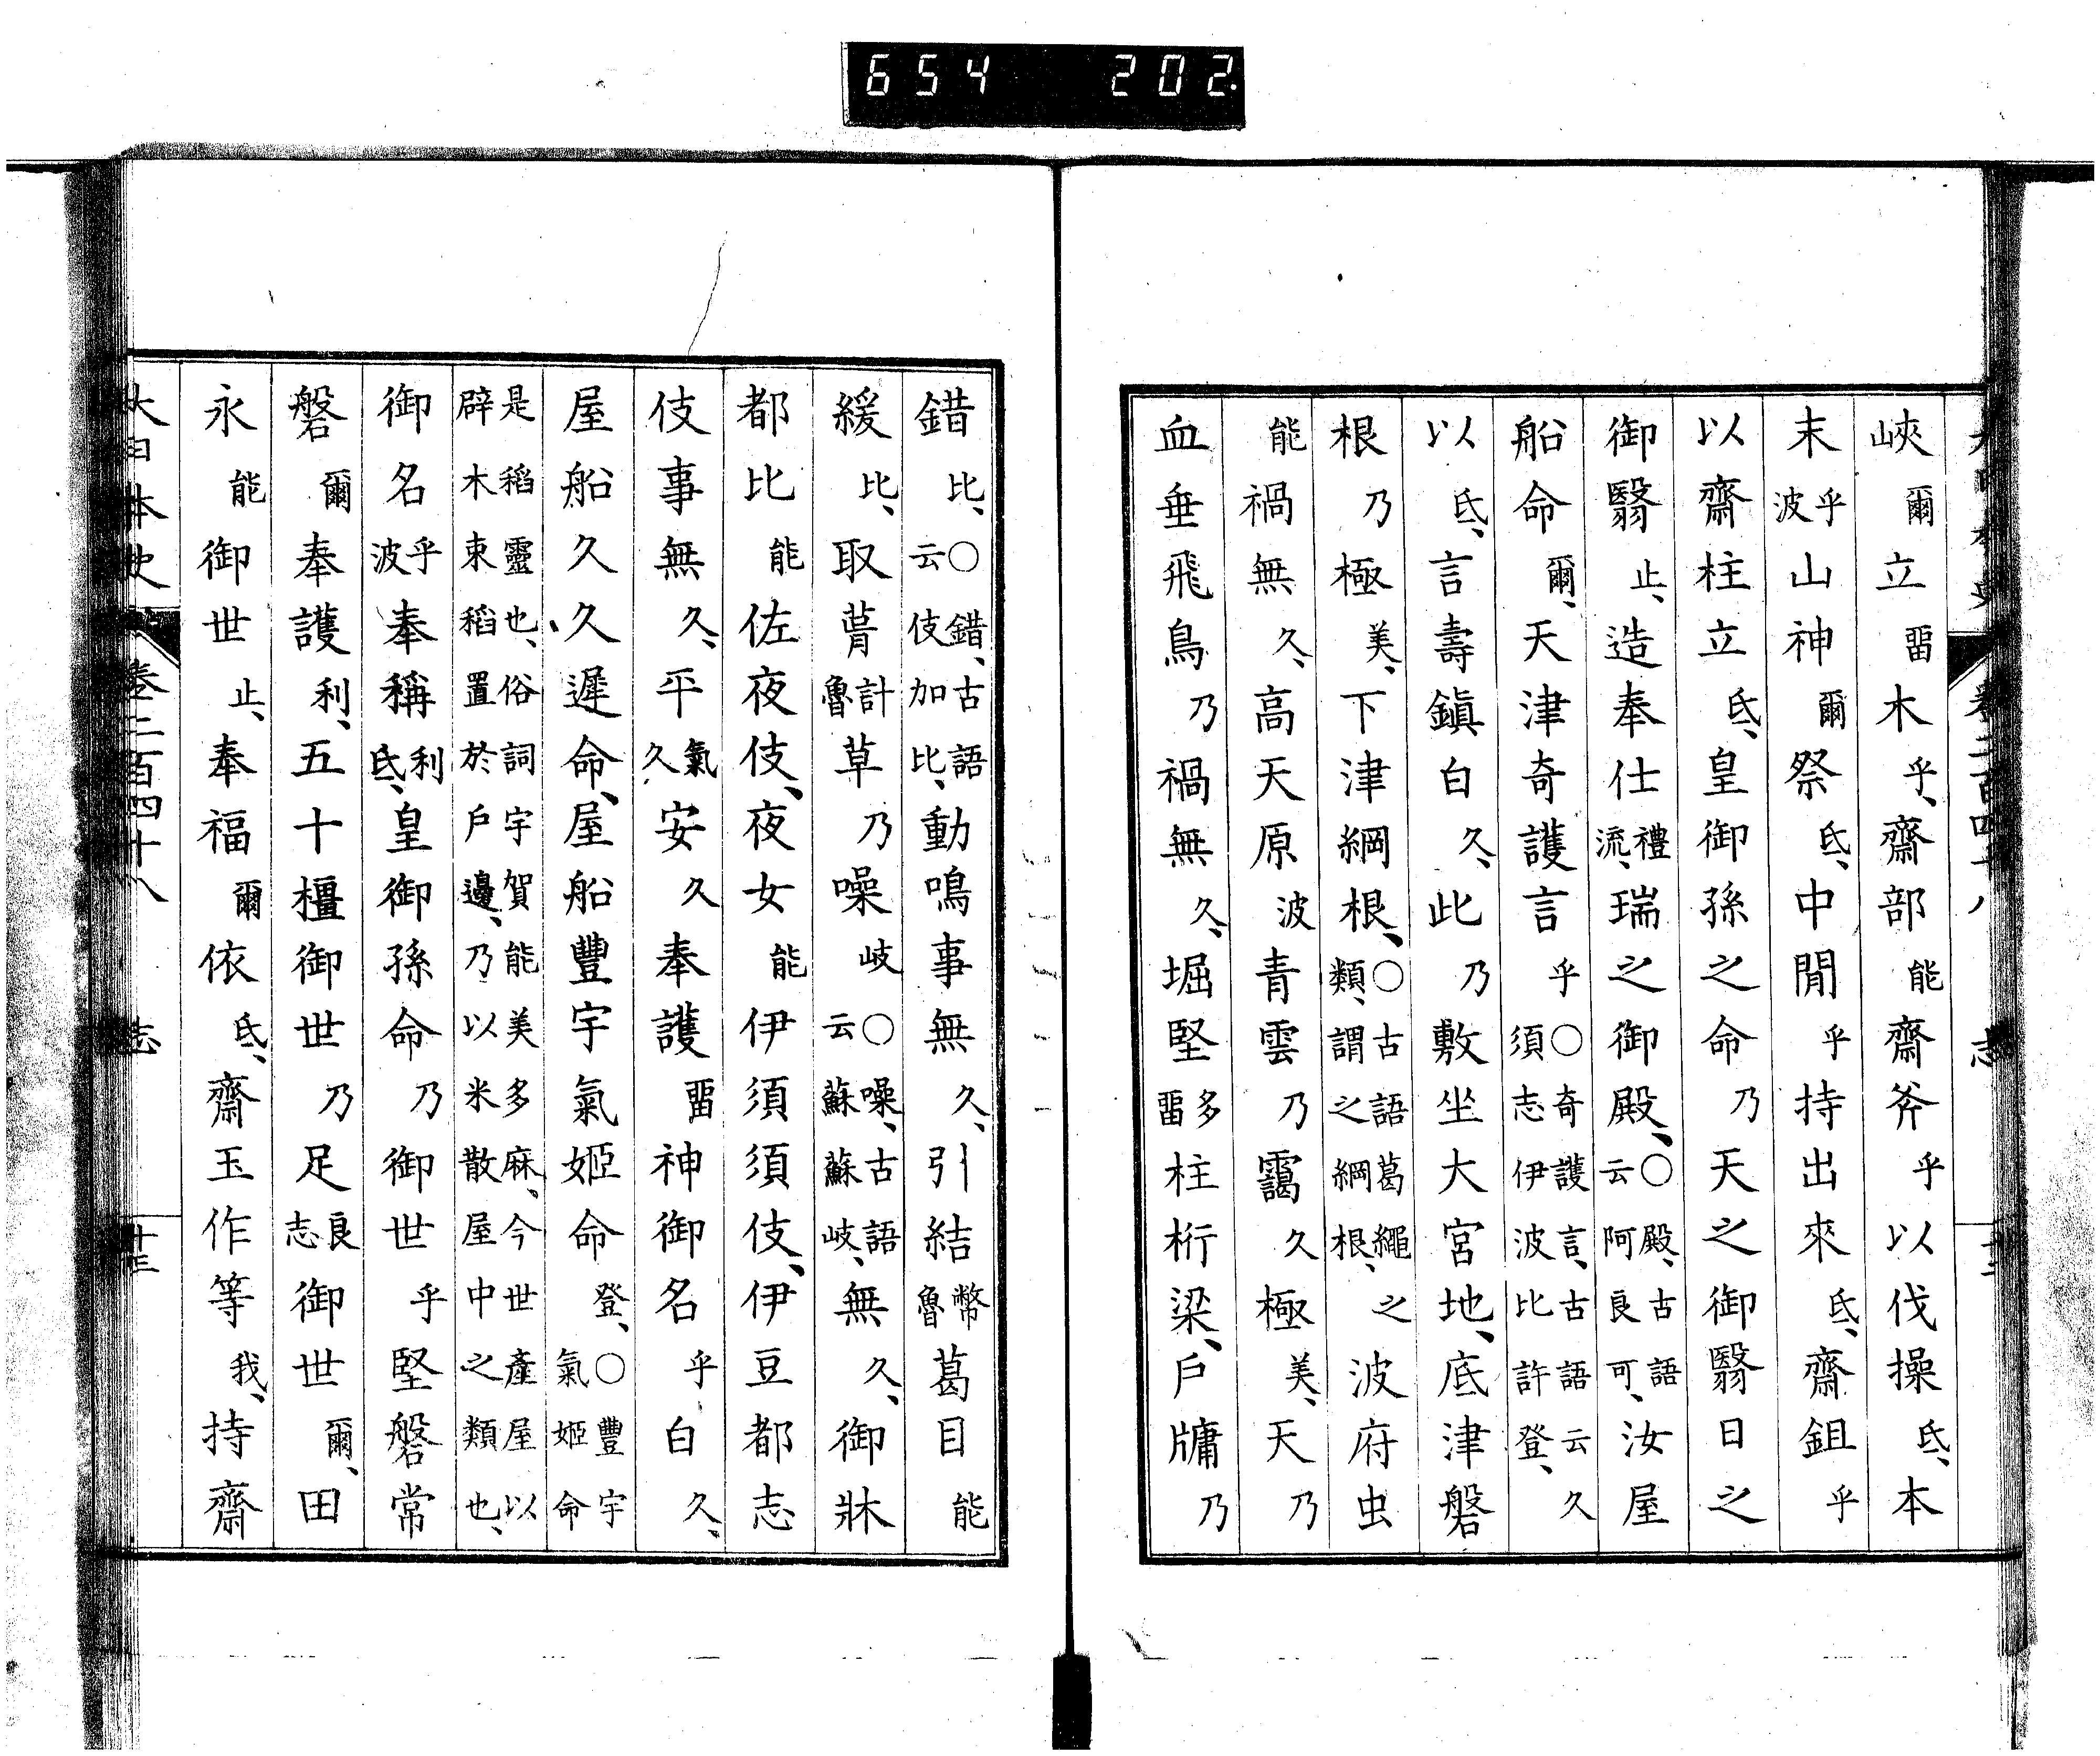 654 202
大日本史 卷二百四十八 志 十二
峽爾立畱木乎、齋部能齋斧乎以伐操氐、本
末乎波山神爾祭氐、中閒乎持出來氐、齋鉏乎
以齋柱立氐、皇御孫之命乃天之御翳日之
御翳止、造奉仕禮流、瑞之御殿、〇殿、古語云阿良可、汝屋
船命爾、天津奇護言乎〇奇護言、古語云久須志伊波比許登、
以氐、言壽鎭白久、此乃敷坐大宮地、底津磐
根乃極美、下津綱根、〇古語葛繩之類、謂之綱根、波府虫
能禍無久、高天原波青雲乃靄久極美、天乃
血垂飛鳥乃禍無久、堀堅多畱柱桁梁、戶牗乃
錯比、〇錯、古語云伎加比、動鳴事無久、引結幣魯葛目能
緩比、取葺計魯草乃噪岐〇噪、古語云蘇蘇岐、無久、御牀
都比能佐夜伎、夜女能伊須須伎、伊豆都志
伎事無久、平氣久、安久奉護畱神御名乎白久、
屋船久久遲命、屋船豐宇氣姬命登、〇豐宇氣姬命
是稻靈也、俗詞宇賀能美多麻、今世產屋以辟木束稻置於戶邊、乃以米散屋中之類也、
御名乎波奉稱利氐、皇御孫命乃御世乎堅磐常
磐爾奉護利、五十橿御世乃足良志御世爾、田
永能御世止、奉福爾依氐、齋玉作等我、持齋
大日本史 卷二百四十八 志 十三